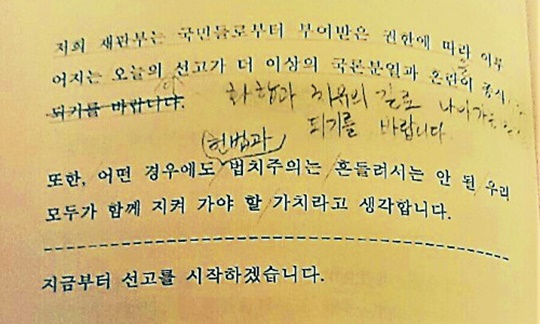 저희 재판부는 국민들로부터 부여받은 권한에 따라 이루
어지는 오늘의 선고가 더 이상의 국론분열과 혼란이 종식
되기를 바랍니다.
화합과 치유의 길로 나아가는
되기를 바랍니다.
헌법과
또한, 어떤 경우에도 법치주의는 흔들려서는 안 될 우리
모두가 함께 지켜 가야 할 가치라고 생각합니다.
지금부터 선고를 시작하겠습니다.